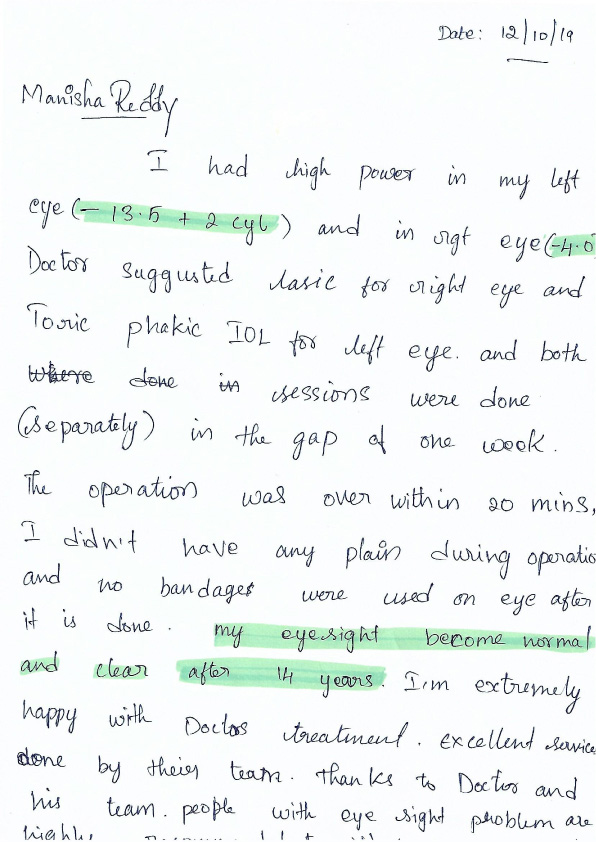 Date: 12/10/19
Manisha Reddy
I had high power in my left
eye (- 13.5 + 2 cyl) and in rigt eye(-4.0
Doctor suggusted lasic for right eye and
Toric phakic IOL for left eye. and both
where done in sessions were done
(separately) in the gap of one week.
The operation was over within 20 mins,
I didn't have any plain during operatio
and no bandages were used on eye after
it is done. my eyesight become normal
and clear after 14 years. I'm extremely
happy with Doctors treatment. excellent service
done by theier team. thanks to Doctor and
his team. people with eye sight problem are
highly